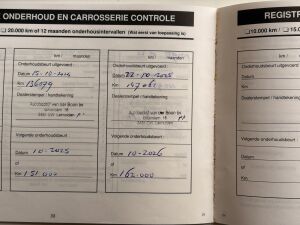 ONDERHOUD EN CARROSSERIE CONTROLE
20.000 km of 12 maanden onderhoudsintervallen (Wat eerst van toepassing is)
km / maanden
Onderhoudsbeurt uitgevoerd:
Datum 15-10-2024
Km 136079
Dealerstempel / handtekening
Autobedrijf van der Boon bv
Volgende onderhoudsbeurt
Datum 10-2025
of
Km 151 000
km / maanden
Onderhoudsbeurt uitgevoerd:
Datum 22-10-2025
Km
Dealerstempel / handtekening
Autobedrijf van der Boon bv
Volgende onderhoudsbeurt
Datum 10-2026
of
Km 162.000
REGISTR
10.000 km /
Onderhoudsbeurt
Datum
Km
Dealerstempel
Volgende onderhoud
Datum
of
Km